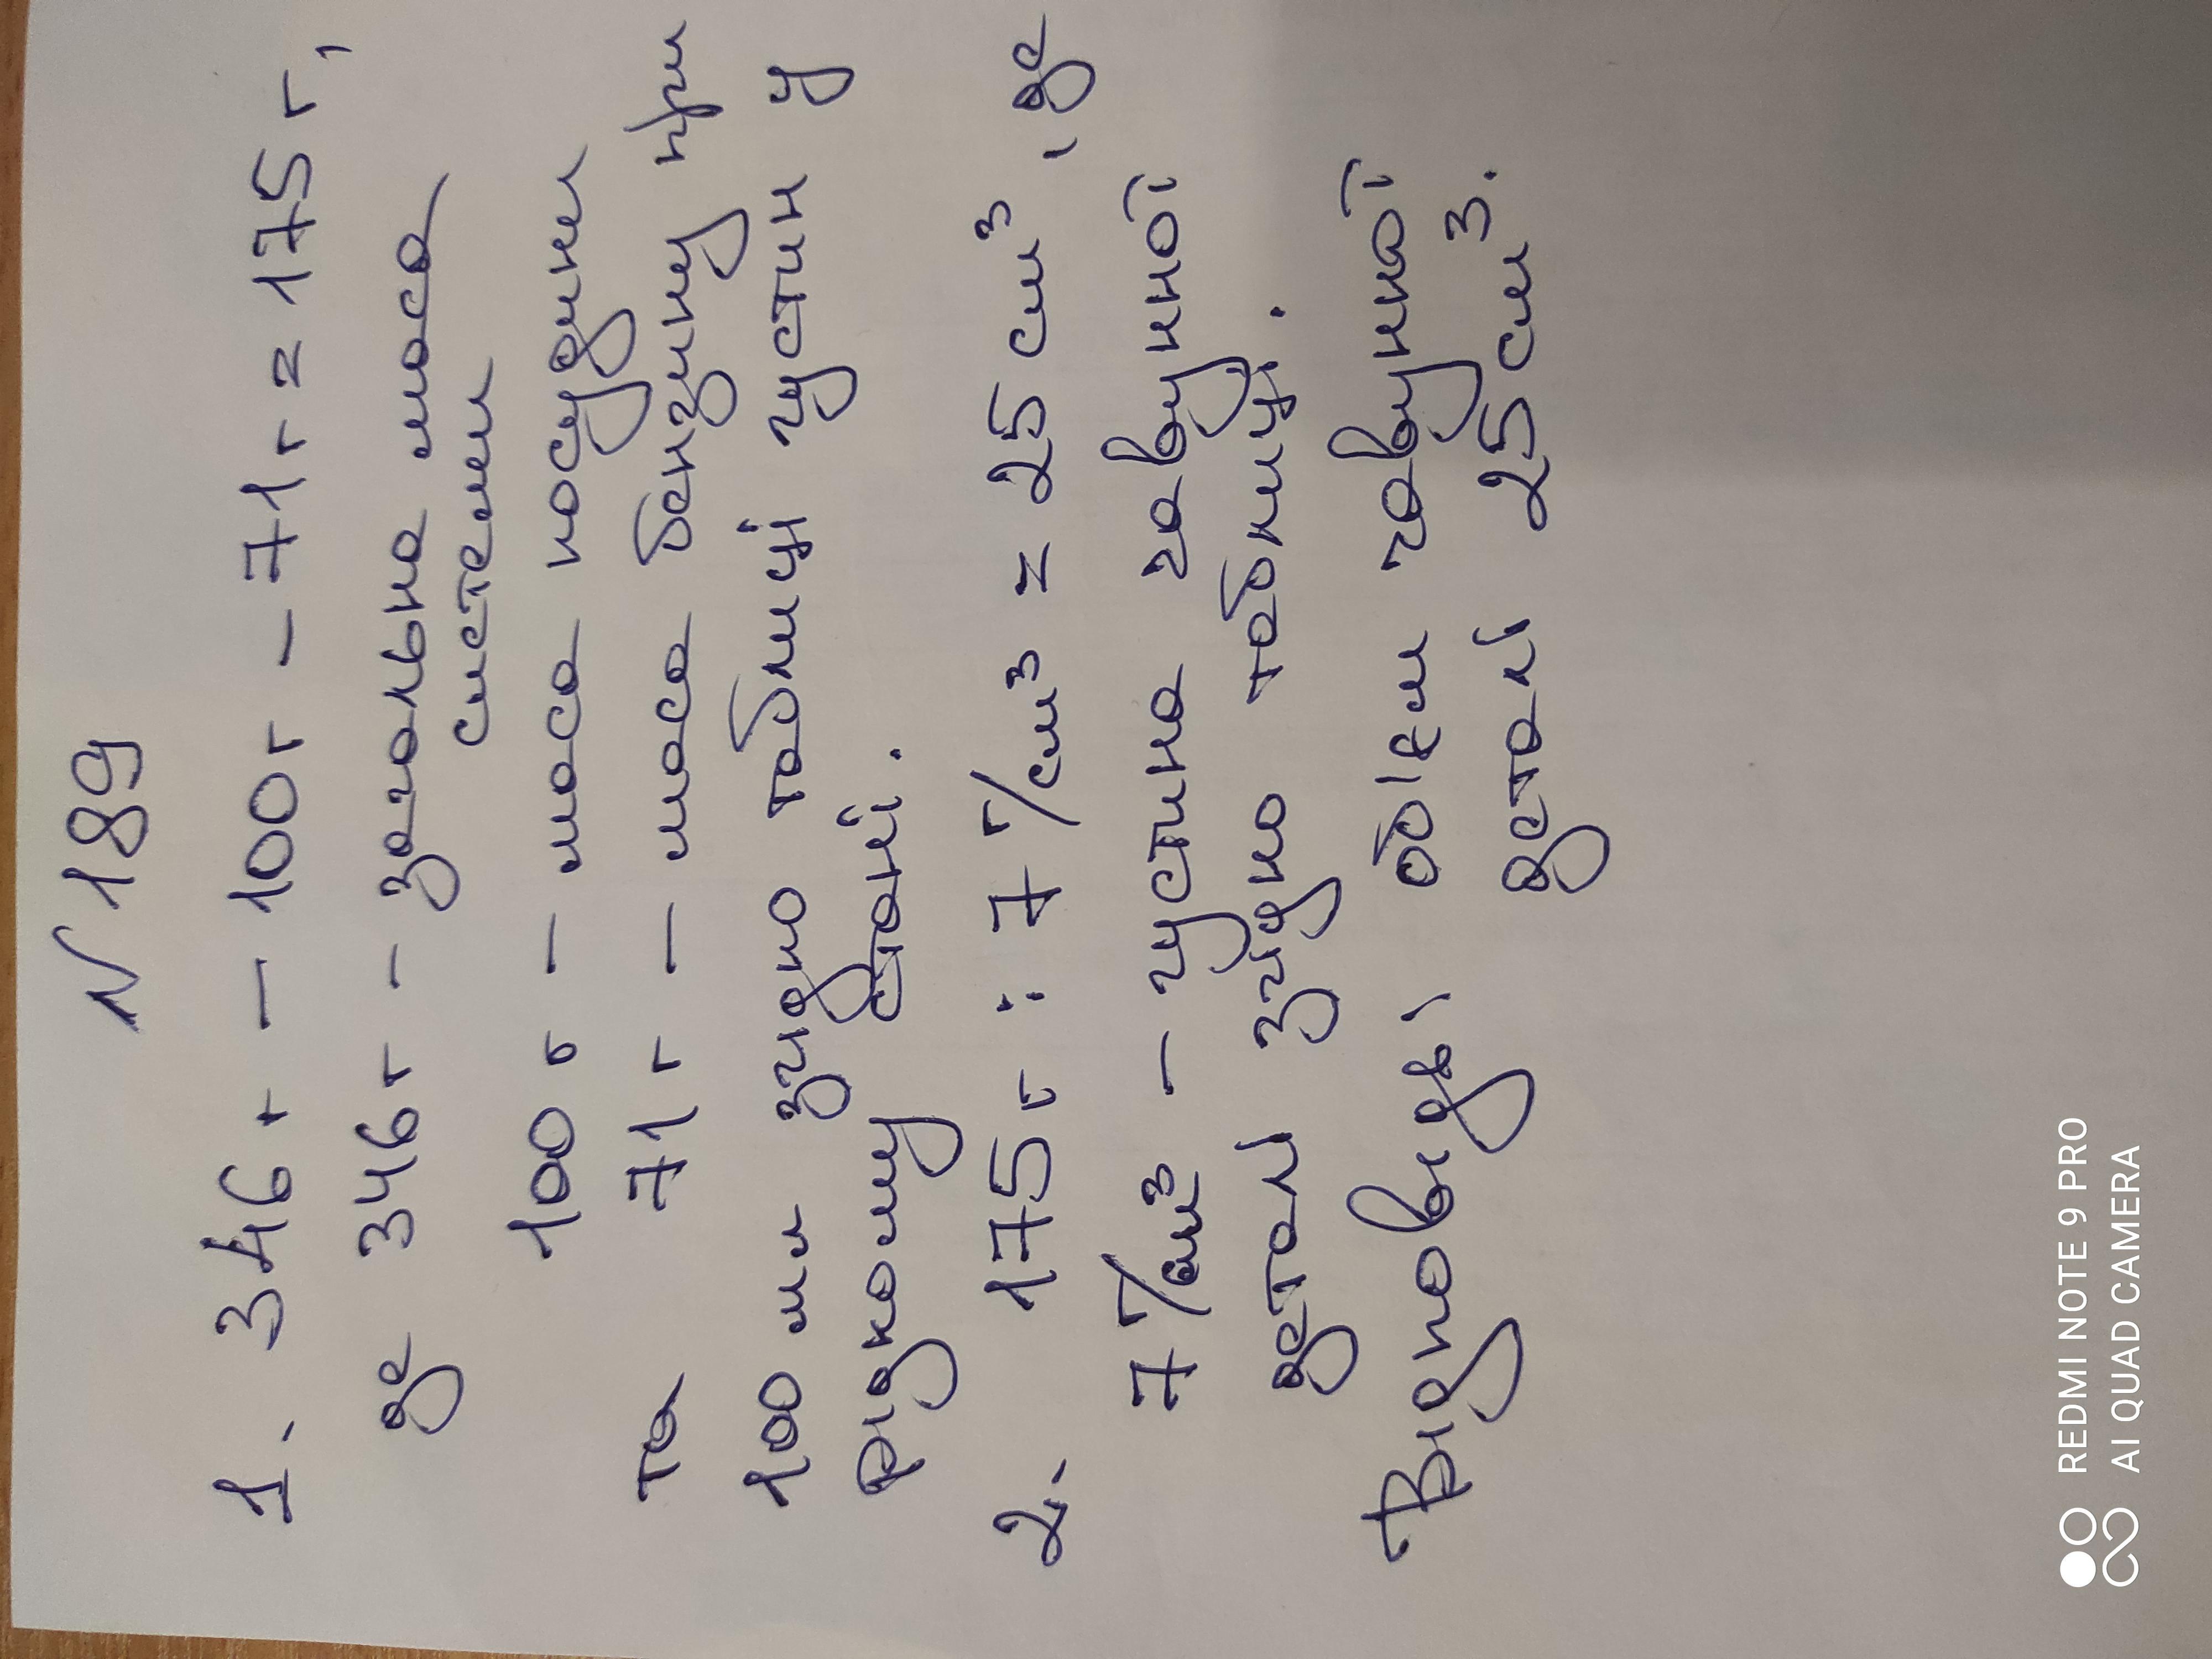 N 189
1. 346 г – 100 г – 71 г = 175 г,
де 346 г – загальна маса
системи
100 г – маса посудини
та 71 г – маса бензину при
100 мл згідно таблиці густин у
рідкому стані.
2. 175 г : 7 г/см³ = 25 см³, де
7 г/см³ – густина чавунної
деталі згідно таблиці.
Відповідь: об'єм чавунної
деталі 25 см³.
REDMI NOTE 9 PRO
AI QUAD CAMERA